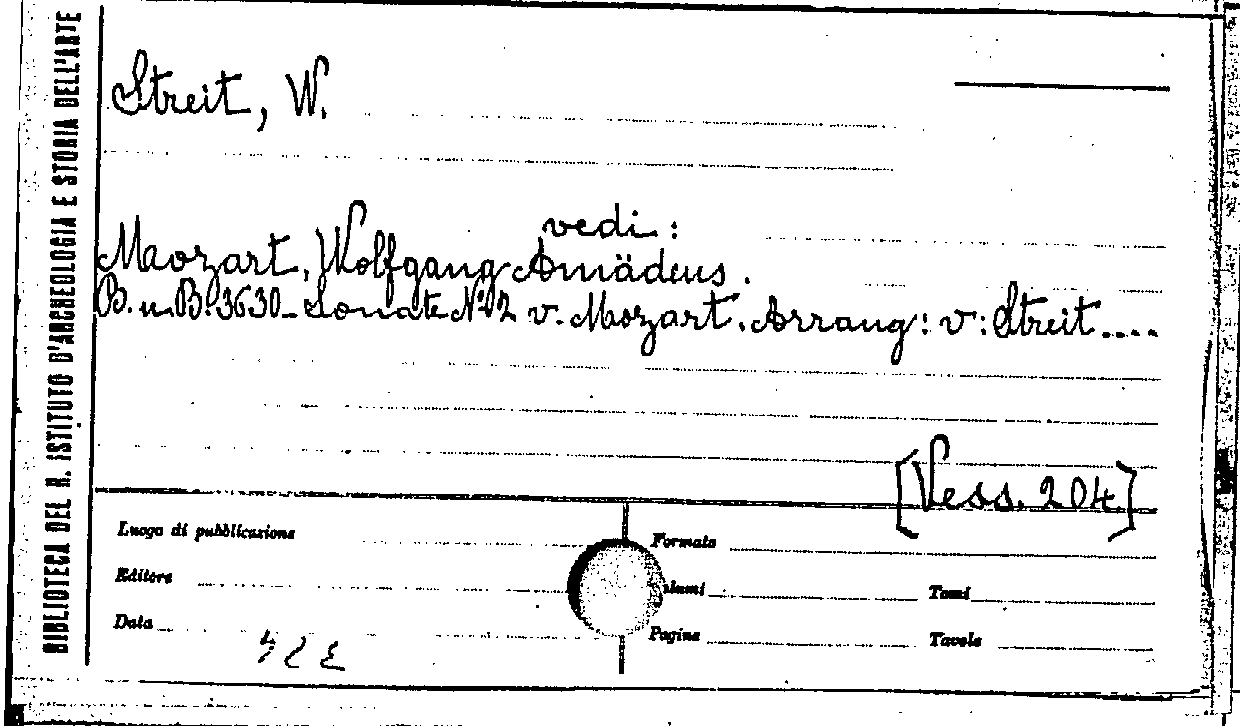 BIBLIOTECA DEL R. ISTITUTO D'ARCHEOLOGIA E STORIA DELL'ARTE
Streit, W.
vedi:
Mozart, Wolfgang Amädeus.
B. u. B. 3630 - Sonate No. 2 v. Mozart. Arrang: v: Streit....
[Vess. 204]
Luogo di pubblicazione
Formato
Editore
Tomi
Data
Pagine
Tavole